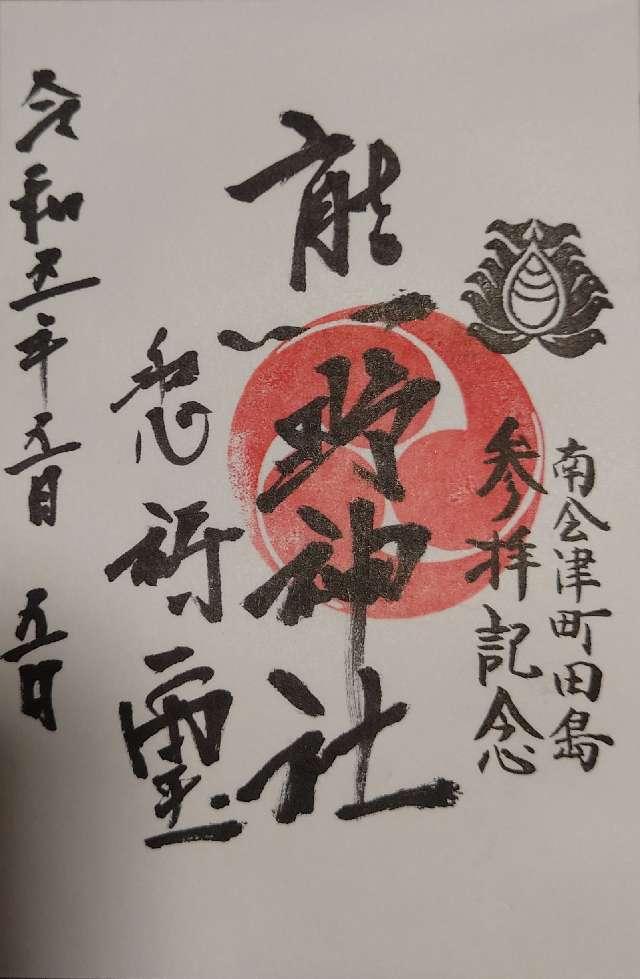 南会津町田島
参拝記念
熊野神社
祈霊
令和五年五月五日